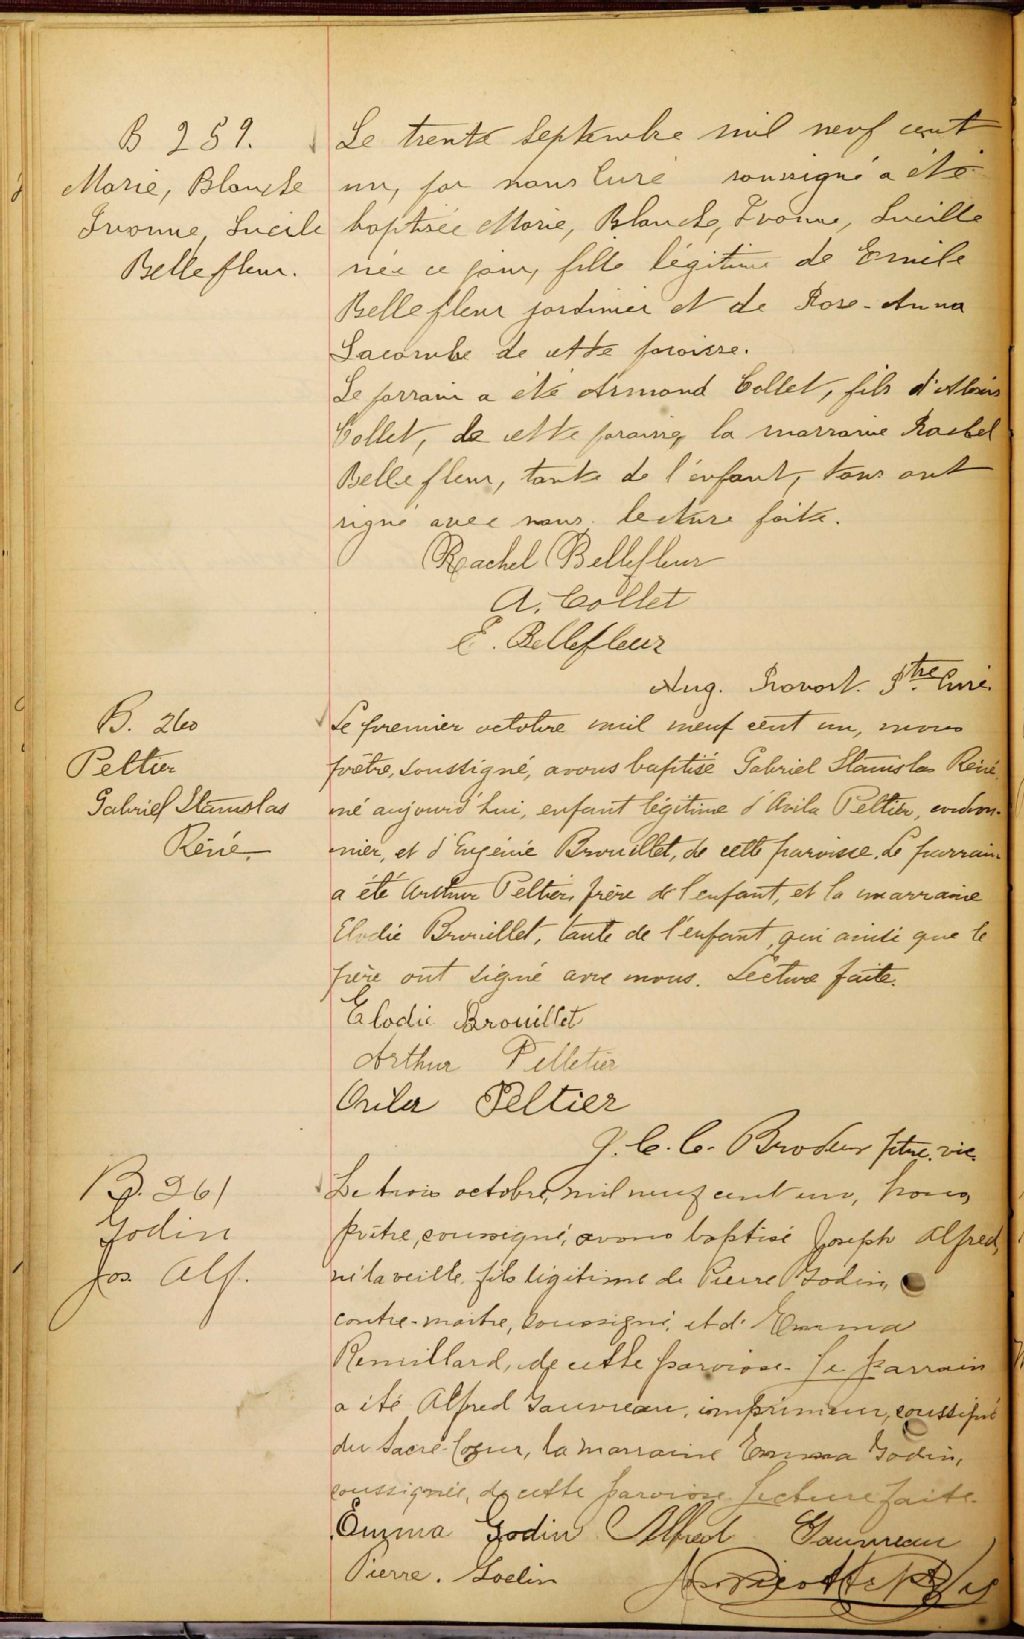 B 259.
Marie, Blanche
Yvonne, Lucile
Bellefleur.
Le trente septembre mil neuf cent
un, par nous Curé soussigné a été
baptisée Marie, Blanche, Yvonne, Lucille
née ce jour, fille légitime de Emile
Bellefleur jardinier et de Rose-Anna
Lacombe de cette paroisse.
Le parrain a été Armand Collet, fils d'Alexis
Collet, de cette paroisse, la marraine Rachel
Bellefleur, tante de l'enfant, tous ont
signé avec nous. lecture faite.
Rachel Bellefleur
A. Collet
E. Bellefleur
Aug. Provost. Ptre Curé.
B. 260
Peltier
Gabriel Stanislas
Réné.
Le premier octobre mil neuf cent un, nous
prêtre, soussigné, avons baptisé Gabriel Stanislas Réné,
né aujourd'hui, enfant légitime d'Avila Peltier, cordon-
nier, et d'Eugénie Brouillet, de cette paroisse. Le parrain
a été Arthur Peltier, frère de l'enfant, et la marraine
Elodie Brouillet, tante de l'enfant, qui ainsi que le
père ont signé avec nous. Lecture faite.
Elodie Brouillet
Arthur Pelletier
Avila Peltier
J. C. C. Brodeur ptre. vic.
B. 261
Godin
Jos. Alf.
Le trois octobre, mil neuf cent un, nous,
prêtre, soussigné, avons baptisé Joseph Alfred,
né la veille, fils légitime de Pierre Godin,
contre-maitre, soussigné, et d'Emma
Remillard, de cette paroisse. Le parrain
a été Alfred Gauvreau, imprimeur, soussigné
du Sacré-Coeur, la marraine Emma Godin,
soussignée, de cette paroisse. Lecture faite.
Emma Godin Alfred Gauvreau
Pierre. Godin